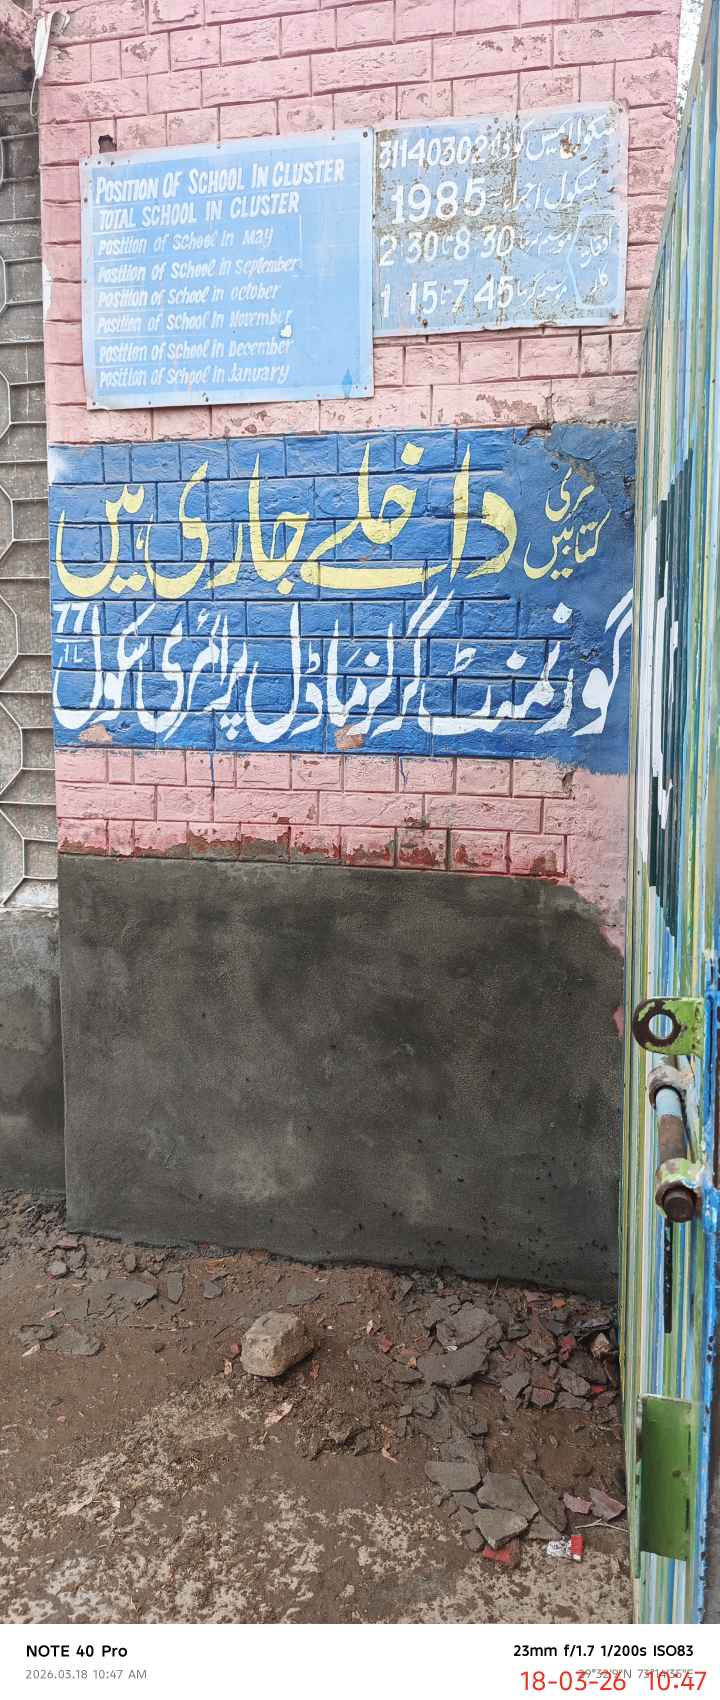 POSITION OF SCHOOL IN CLUSTER
TOTAL SCHOOL IN CLUSTER
Position of School in May
Position of School in September
Position of School in October
Position of School in November
Position of School in December
Position of School in January
سکول ایمس کوڈ 31140302
سکول اجراء 1985
اوقات کار
موسم سرما 8 30 تا 2 30
موسم گرما 7 45 تا 1 15
داخلے جاری ہیں
فری کتابیں
گورنمنٹ گرلز ماڈل پرائمری سکول 77/1L
NOTE 40 Pro
2026.03.18 10:47 AM
23mm f/1.7 1/200s ISO83
18-03-26 10:47